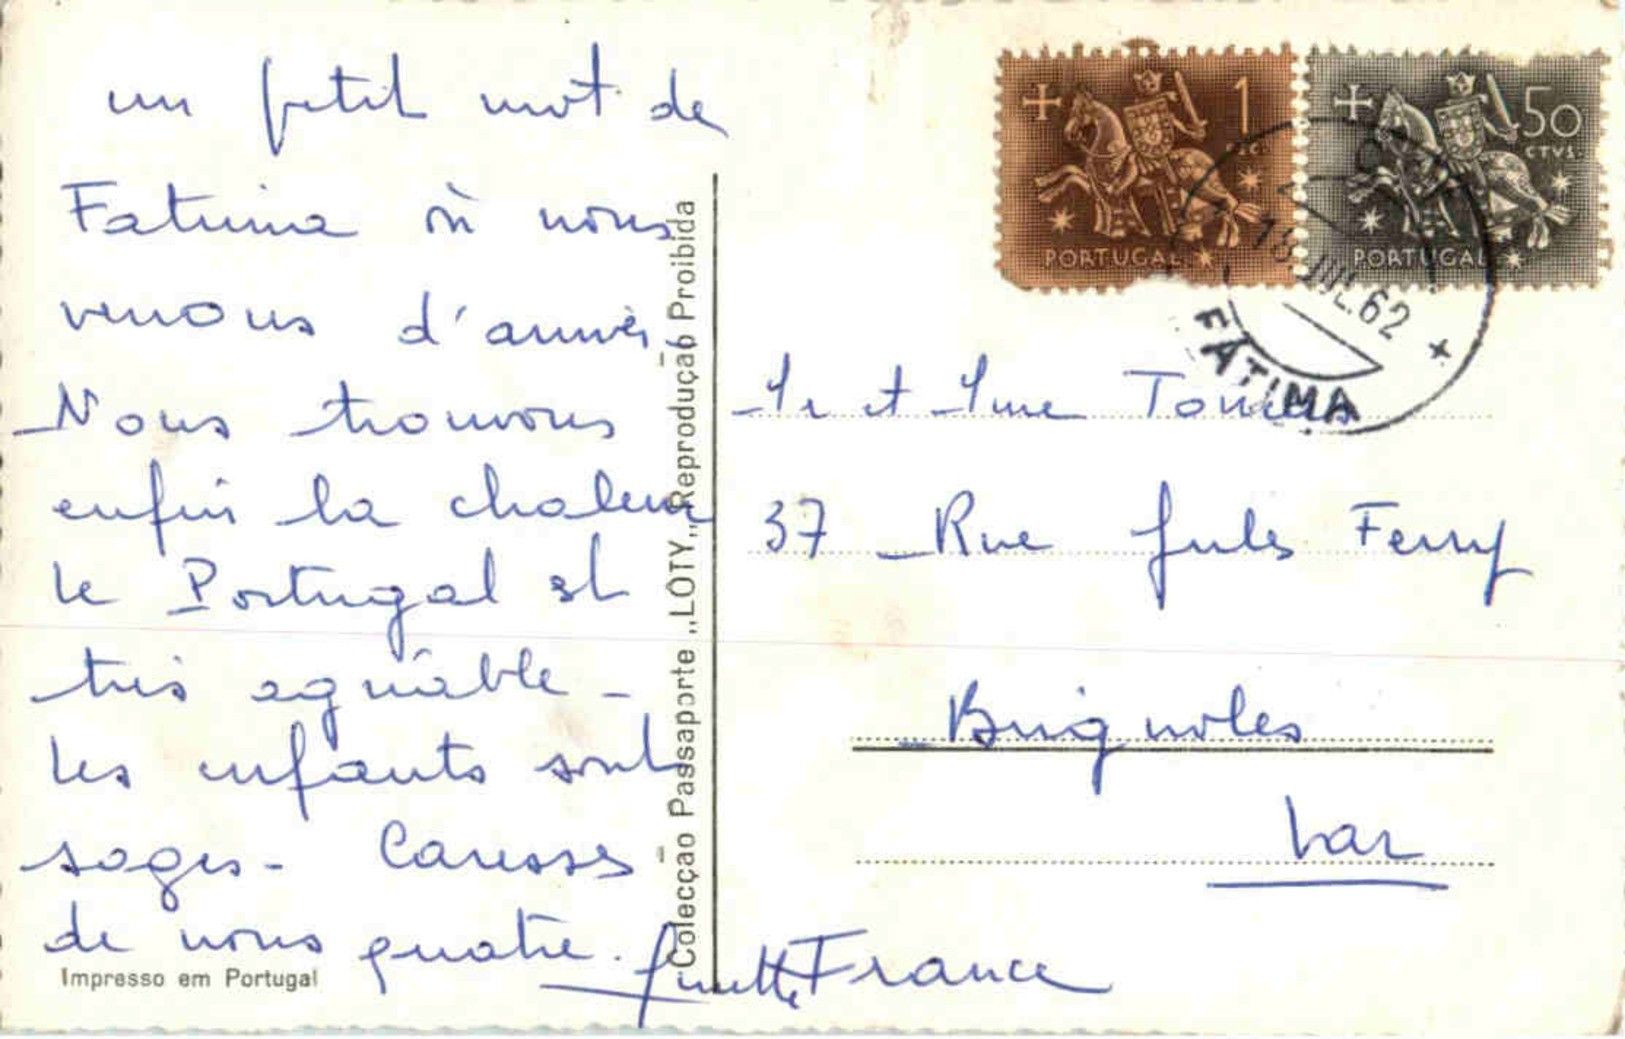 un petit mot de
Fatima où nous
venons d'arriver
Nous trouvons
enfin la chaleur
le Portugal est
très agréable -
les enfants sont
sages - Caresses
de nous quatre.
Ginette
Impresso em Portugal
Colecção Passaporte „LOTY„ Reprodução Proibida
1
ESC.
PORTUGAL
50
CTVS.
PORTUGAL
JUL. 62
FÁTIMA
Mr et Mme
37 Rue Jules Ferry
Brignoles
Var
France